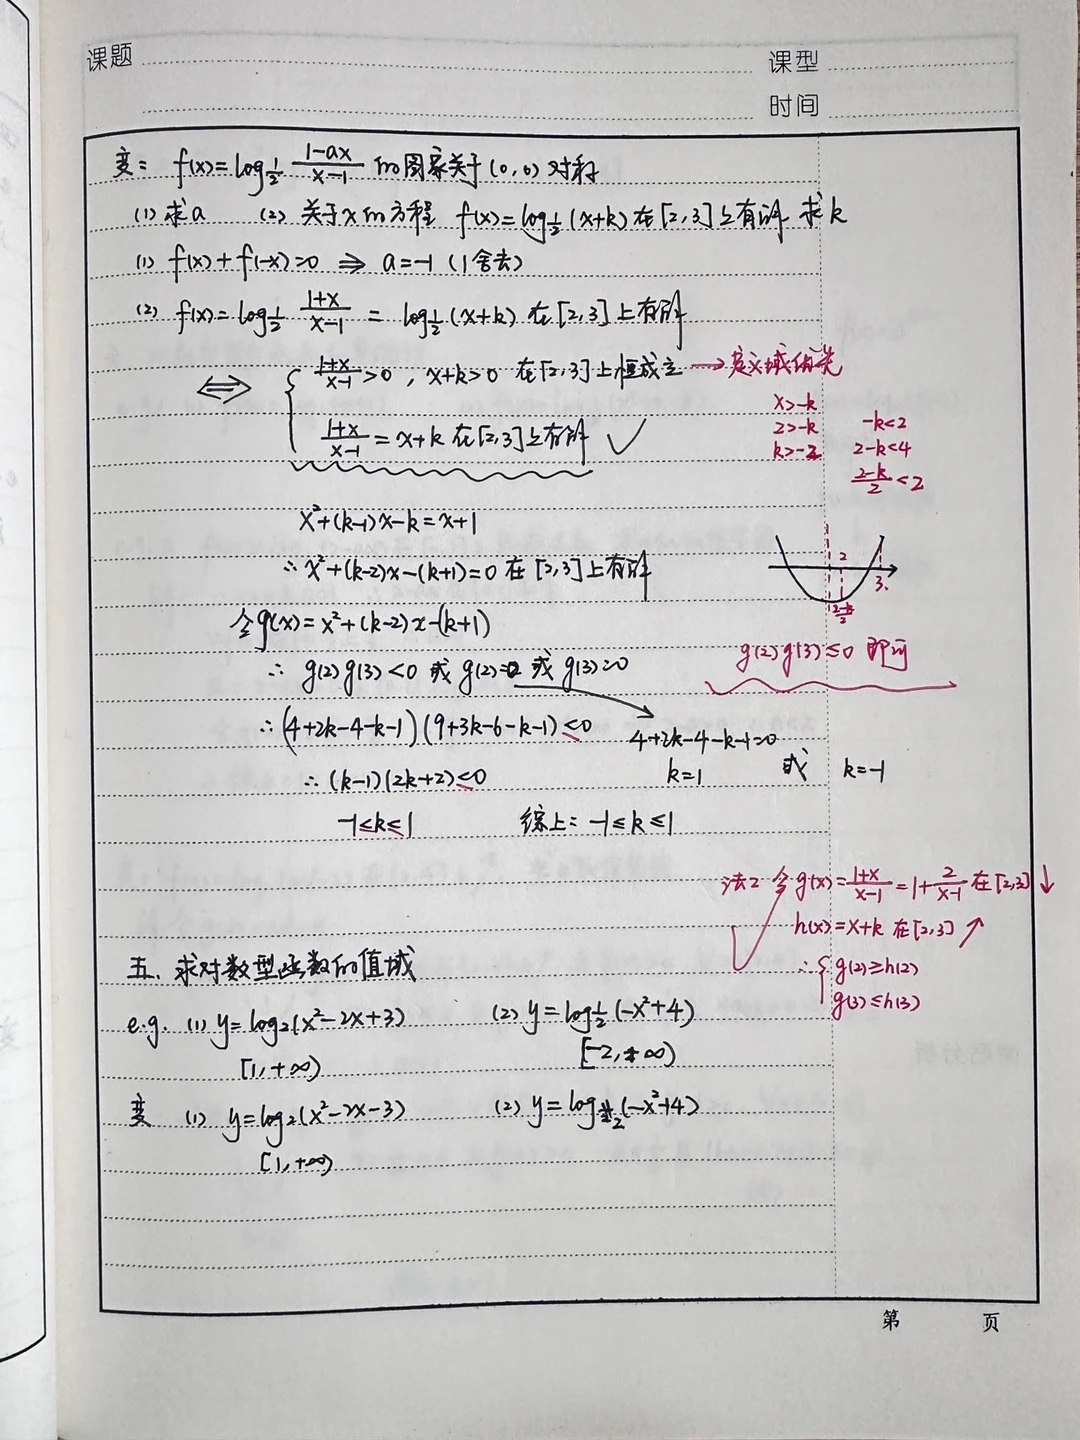 课题
课型
时间
变: f(x)=log½ (1-ax)/(x-1) 的图象关于(0,0)对称
(1) 求a (2) 关于x的方程 f(x)=log½(x+k)在[2,3]上有解 求k
(1) f(x)+f(-x)=0 ⇒ a=-1 (1舍去)
(2) f(x)=log½ (1+x)/(x-1) = log½(x+k) 在[2,3]上有解
⇔ { (1+x)/(x-1)>0, x+k>0 在[2,3]上恒成立 → 定义域优先
(1+x)/(x-1)=x+k 在[2,3]上有解 ✓
x>-k
2>-k
k>-2
-k<2
2-k<4
(2-k)/2<2
x²+(k-1)x-k=x+1
∴x²+(k-2)x-(k+1)=0 在[2,3]上有解
2
3.
(2-k)/2
令g(x)=x²+(k-2)x-(k+1)
g(2)g(3)≤0 即可
∴ g(2)g(3)<0 或 g(2)=0 或 g(3)=0
∴(4+2k-4-k-1)(9+3k-6-k-1)≤0
4+2k-4-k-1=0
∴(k-1)(2k+2)≤0
k=1 或 k=-1
-1≤k≤1 综上: -1≤k≤1
法2 令g(x)=(1+x)/(x-1)=1+2/(x-1)在[2,3]↓
h(x)=x+k 在[2,3]↗
∴{ g(2)≥h(2)
g(3)≤h(3)
五、求对数型函数的值域
e.g. (1) y=log₂(x²-2x+3) (2) y=log½(-x²+4)
[1,+∞) [-2,+∞)
变 (1) y=log₂(x²-2x-3) (2) y=log½(-x²+4)
[1,+∞)
第 页